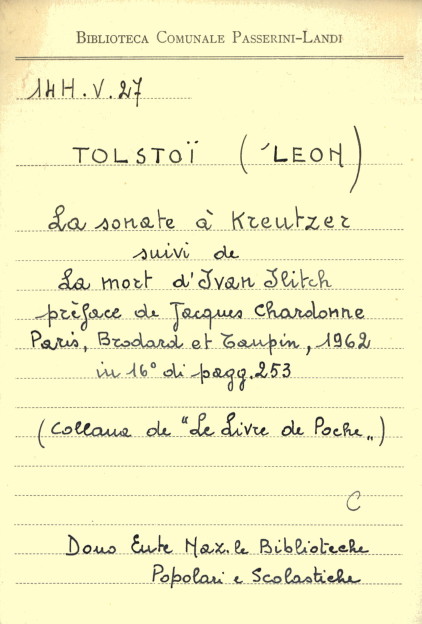 BIBLIOTECA COMUNALE PASSERINI-LANDI
14H.V.27
TOLSTOÏ (´LEON)
La sonate à Kreutzer
suivi de
La mort d'Ivan Ilitch
prèface de Jacques Chardonne
Paris, Brodard et Taupin, 1962
in 16° di pagg. 253
(Collana de "Le Livre de Poche„)
C
Dono Ente Naz.le Biblioteche
Popolari e Scolastiche